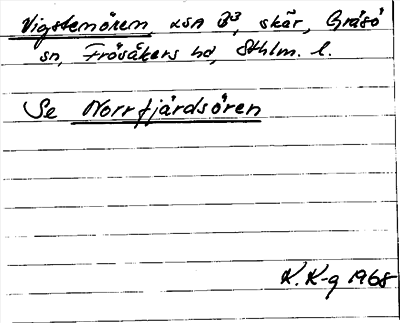 Vigstenören, LSA B3, skär, Gräsö
sn, Frösåkers hd, Sthlm. l.
Se Norrfjärdsören
K. K-g 1968